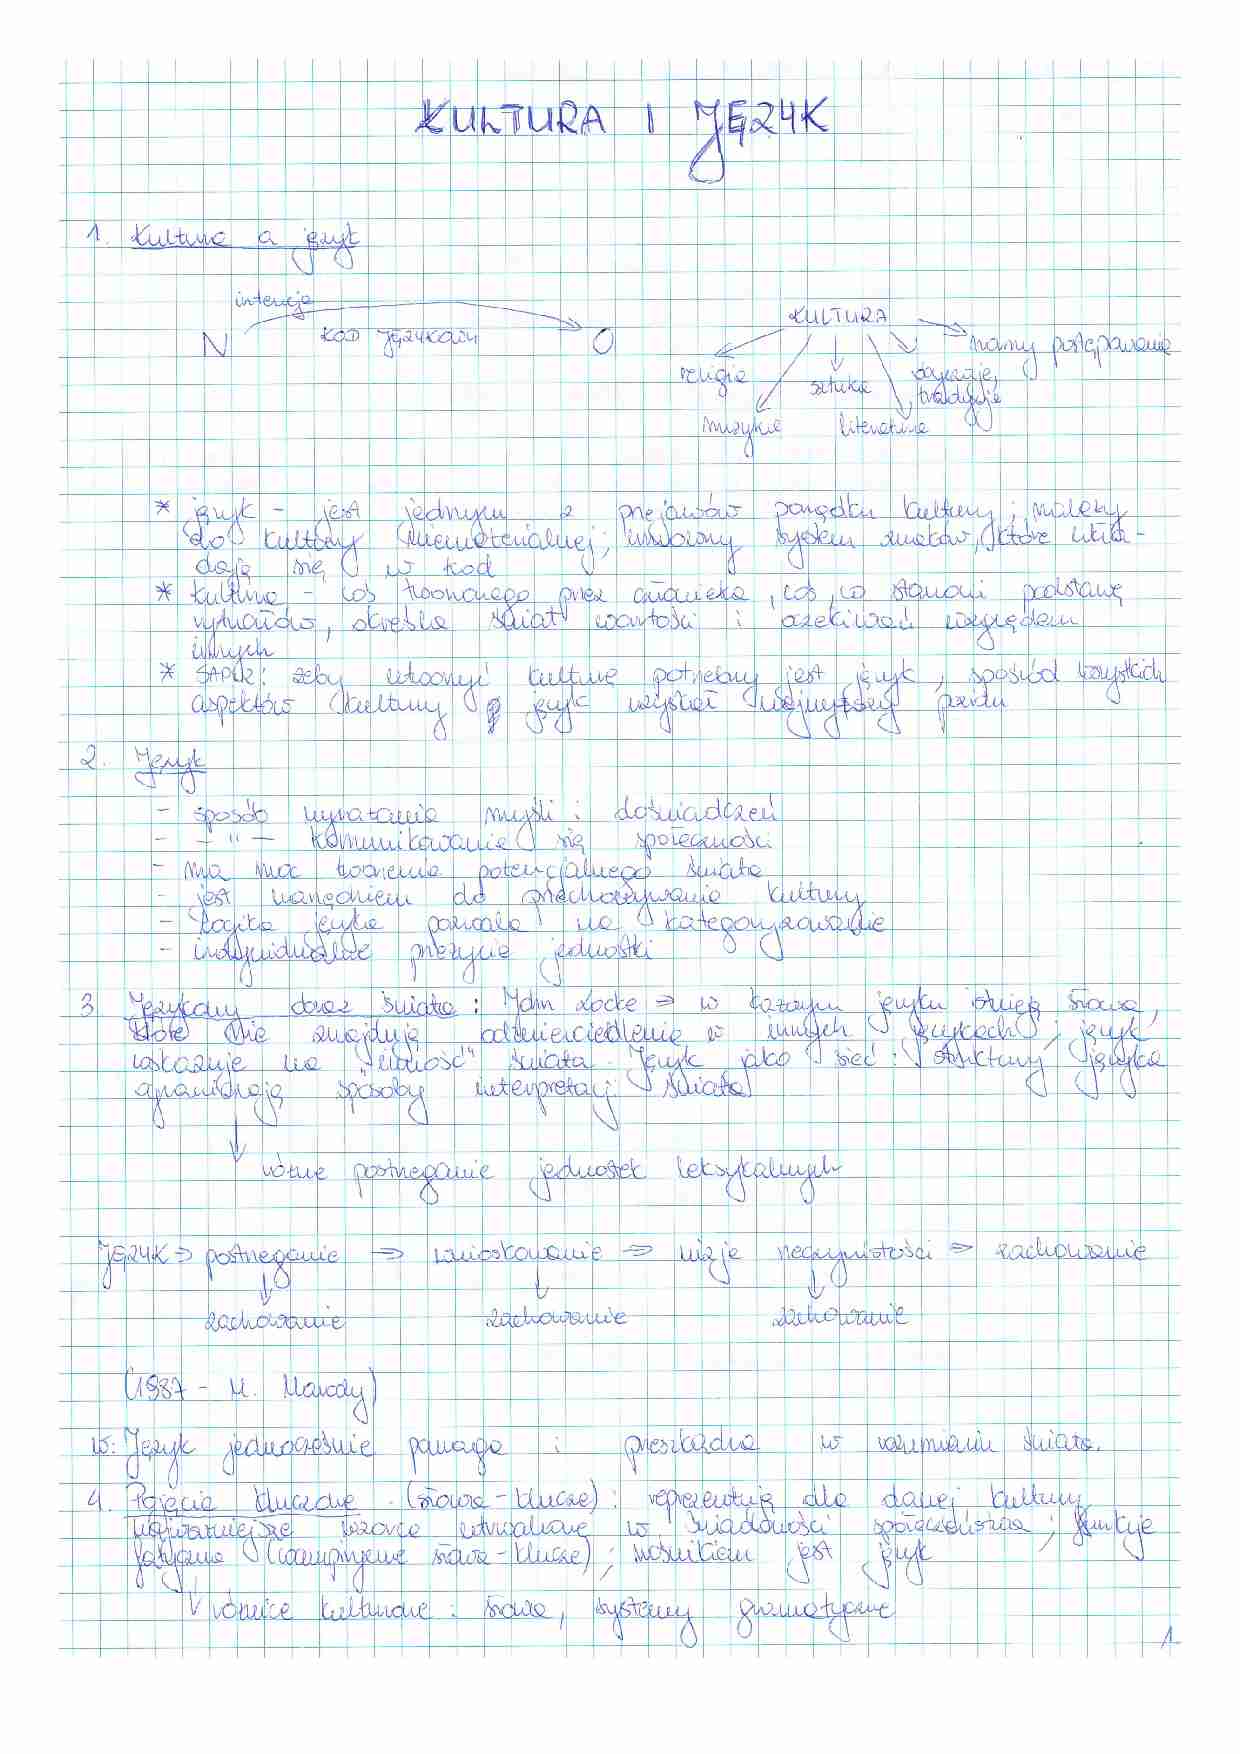 KULTURA I JĘZYK
1. Kultura a język
intencja
N KOD JĘZYKOWY O
KULTURA
normy postępowania
religia
sztuka
obyczaje,
tradycje
muzyka
literatura
* język - jest jednym z przejawów porządku kultury; należy
do kultury niematerialnej; umowny system znaków, które ukła-
dają się w kod
* kultura - coś tworzonego przez człowieka, coś, co stanowi podstawę
wytworów, określa świat wartości i oczekiwań względem
innych
* SAPIR: żeby utworzyć kulturę potrzebny jest język, spośród wszystkich
aspektów kultury język uzyskał najwyższy
2. Język
- sposób wyrażania myśli i doświadczeń
- - " - komunikowania się społeczności
- ma moc tworzenia potencjalnego świata
- jest narzędziem do przechowywania kultury
- logika języka pozwala na kategoryzowanie
- indywidualne przeżycie jednostki
3 Językowy obraz świata: John Locke ⇒ w każdym języku istnieją słowa,
które nie znajdują odzwierciedlenia w innych językach; język
wskazuje na świata. Język jako sieć: struktury języka
sposoby interpretacji świata
↓
różne postrzeganie jednostek leksykalnych
JĘZYK ⇒ postrzeganie ⇒ wnioskowanie ⇒ wizja rzeczywistości ⇒ zachowanie
↓ ↓ ↓
zachowanie zachowanie zachowanie
(1987 - M. Marody)
w: Język jednocześnie pomaga i przeszkadza w rozumieniu świata.
4. Pojęcia kluczowe (słowa-klucze): reprezentują dla danej kultury
najważniejsze wzorce utrwalone w świadomości społeczeństwa; funkcje
(słowa-klucze); nośnikiem jest język
↓ różnice kulturowe: słowa, systemy gramatyczne
1